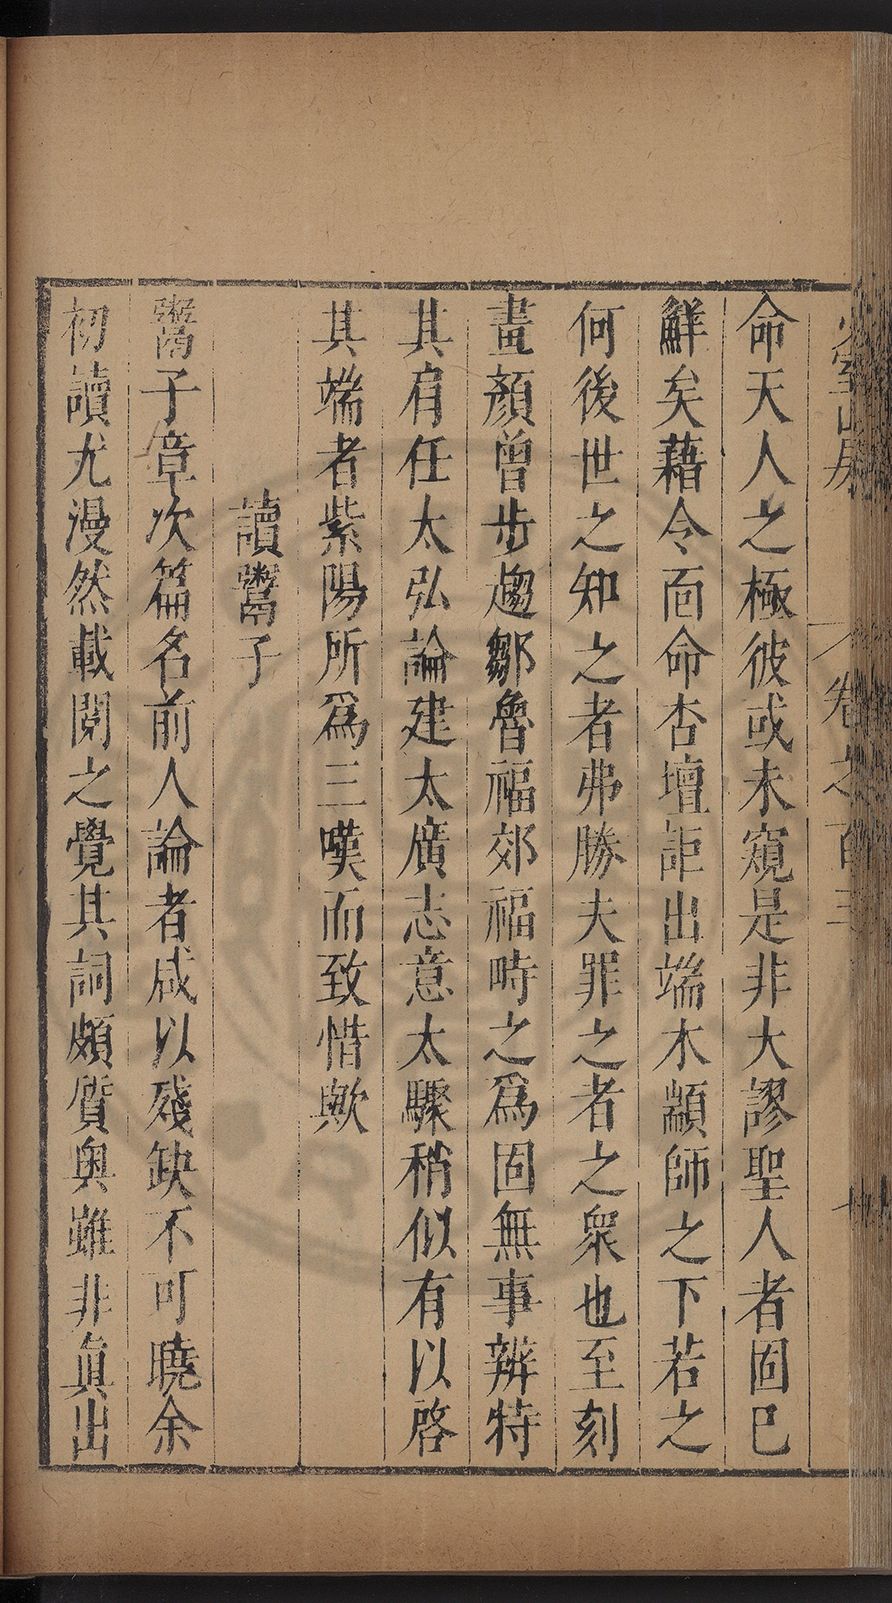 少室山房
卷之百三
命天人之極彼或未窺是非大謬聖人者固已
鮮矣藉令面命杏壇詎出端木顓師之下若之
何後世之知之者弗勝夫罪之者之衆也至刻
畫顏曾步趨鄒魯福郊福畤之爲固無事辨特
其肩任太弘論建太廣志意太驟稍似有以啓
其端者紫陽所爲三嘆而致惜歟
讀鬻子
鬻子章次篇名前人論者咸以殘缺不可曉余
初讀尤漫然載閱之覺其詞頗質奥雖非眞出